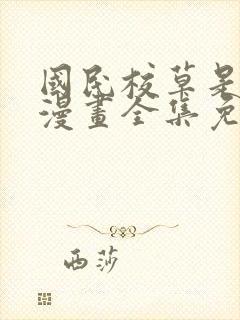 國民校草是
漫畫全集免
西莎